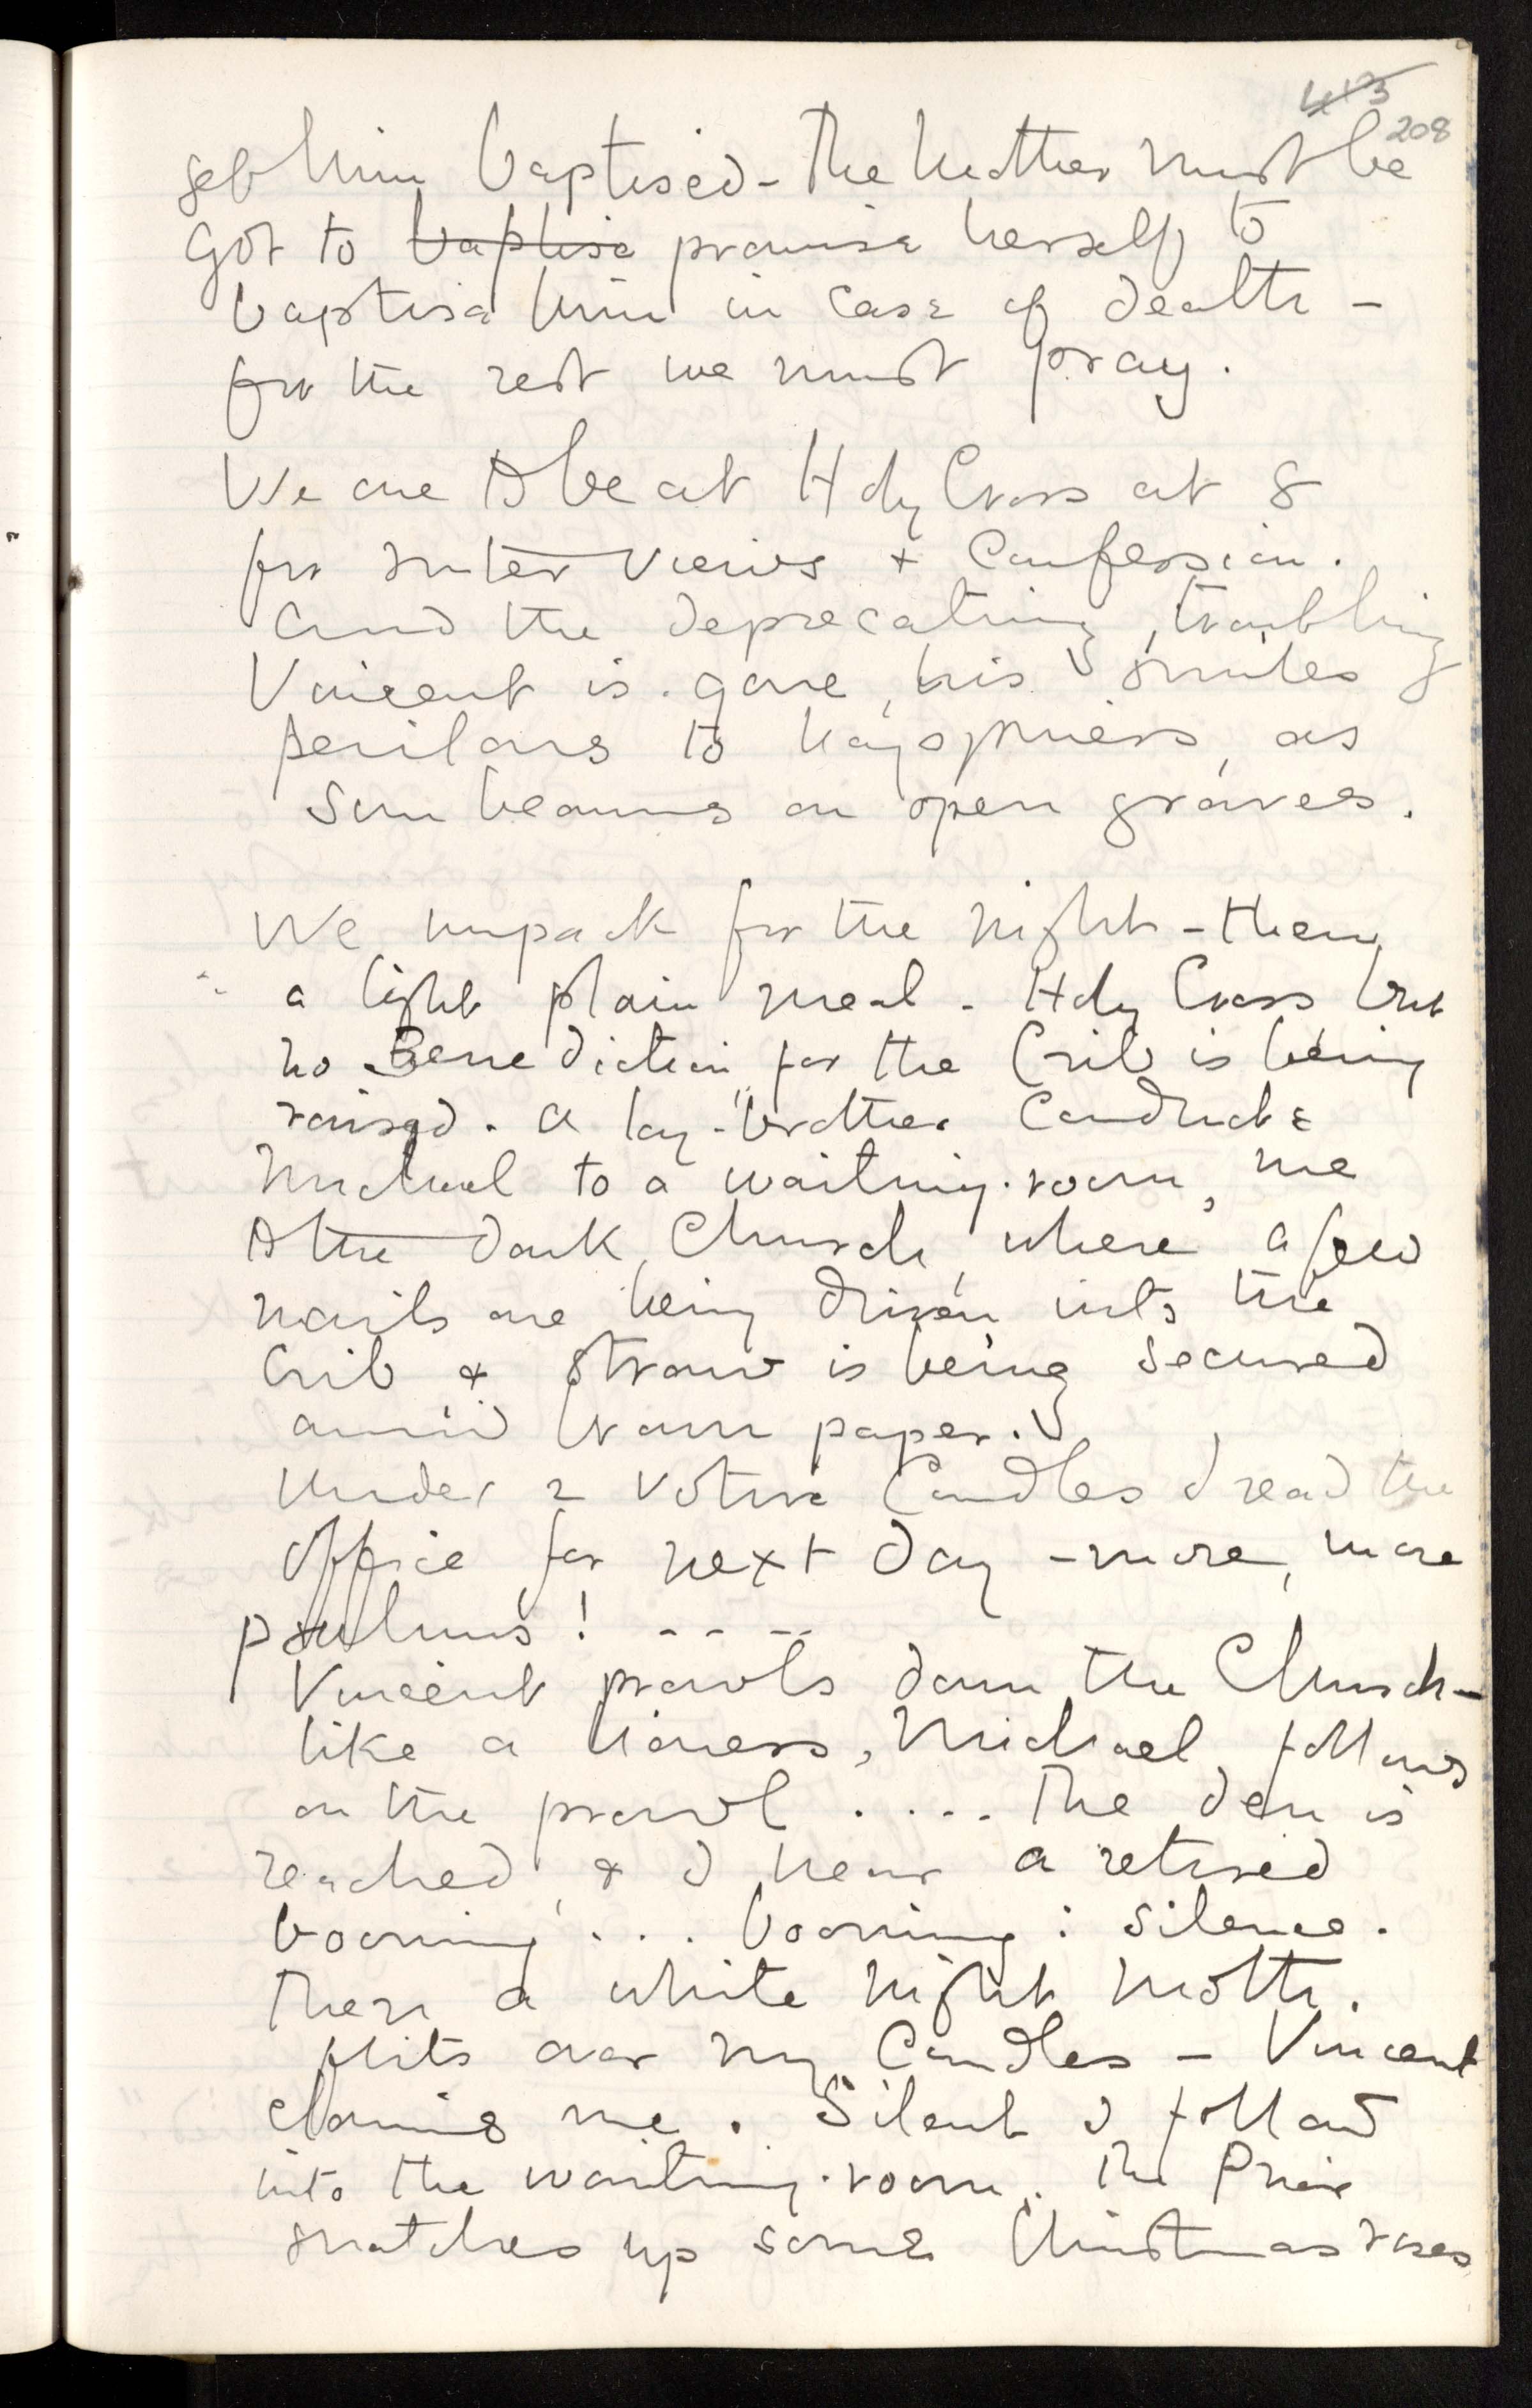 413
208
get him baptised - The Mother must be
got to baptise promise herself to
baptise him in case of death -
for the rest we must pray.
We are to be at Holy Cross at 8
for interviews & Confession.
And the deprecating, troubling
Vincent is gone, his smiles
perilous to happiness, as
sunbeams on open graves.
We unpack for the night - then
a light plain meal - Holy Cross but
no Benediction, for the Crib is being
raised. A lay-brother conducts
Michael to a waiting-room, me
to the dark Church, where a few
nails are being driven into the
Crib & straw is being secured
amid brown paper.
Under 2 votive Candles I read the
Office for next day - more, more
psalms! - - - -
Vincent prowls down the Church -
like a lioness, Michael follows
on the prowl .... The den is
reached, & I hear a retired
booming ... booming: silence.
Then a white night moth
flits over my Candles - Vincent
claims me. Silent I follow
into the waiting-room. The Prior
snatches up some Christmas roses